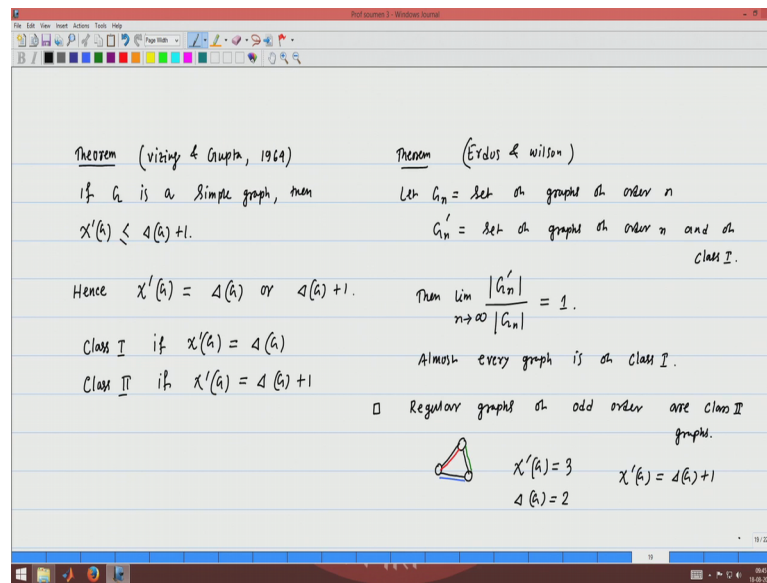 Prof soumen 3 - Windows Journal
File Edit View Insert Actions Tools Help
Page Width
B I
Theorem (Vizing & Gupta, 1964)
If G is a simple graph, then
χ'(G) ≤ Δ(G)+1.
Hence χ'(G) = Δ(G) or Δ(G)+1.
Class I if χ'(G) = Δ(G)
Class II if χ'(G) = Δ(G)+1
Theorem (Erdus & Wilson)
Let Gn = Set of graphs of order n
Gn' = Set of graphs of order n and of
Class I.
Then lim n→∞ |Gn'| / |Gn| = 1.
Almost every graph is of Class I.
□ Regular graphs of odd order are Class II
graphs.
χ'(G) = 3 χ'(G) = Δ(G)+1
Δ(G) = 2
19 / 22
19